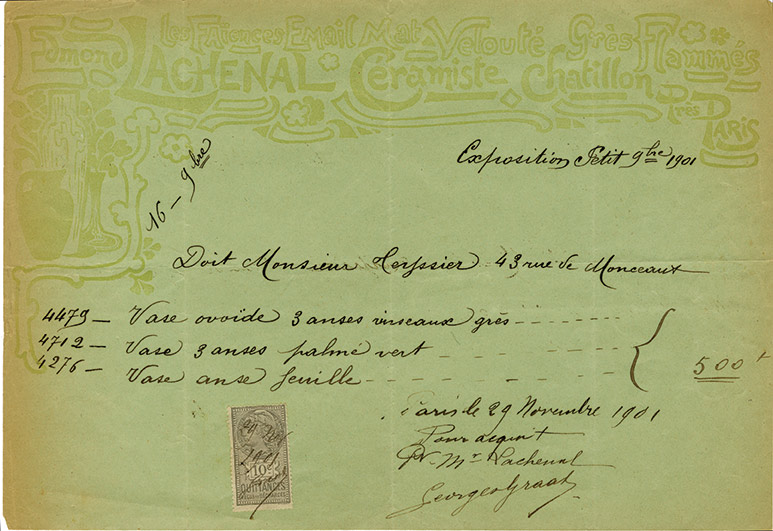 Edmond
LACHENAL
Les Faïences Email Mat Velouté Grès Flammés
Céramiste Chatillon près Paris
Exposition Petit 9bre 1901
16 - 9bre
Doit Monsieur Teyssier 43 rue de Monceaux
4479 — Vase ovoïde 3 anses vinseaux grès
4712 — Vase 3 anses palmé vert
4276 — Vase anse feuille
500f
Paris le 29 Novembre 1901
Pour acquit
Pr Mr Lachenal
Georges Graat
29 Nov
1901
10c
QUITTANCES